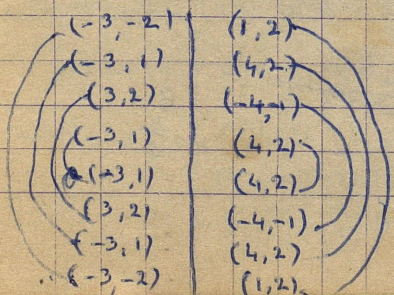 (-3,-2) (1,2)
(-3,1) (4,2)
(3,2) (-4,-1)
(-3,1) (4,2)
(-3,1) (4,2)
(3,2) (-4,-1)
(-3,1) (4,2)
(-3,-2) (1,2)